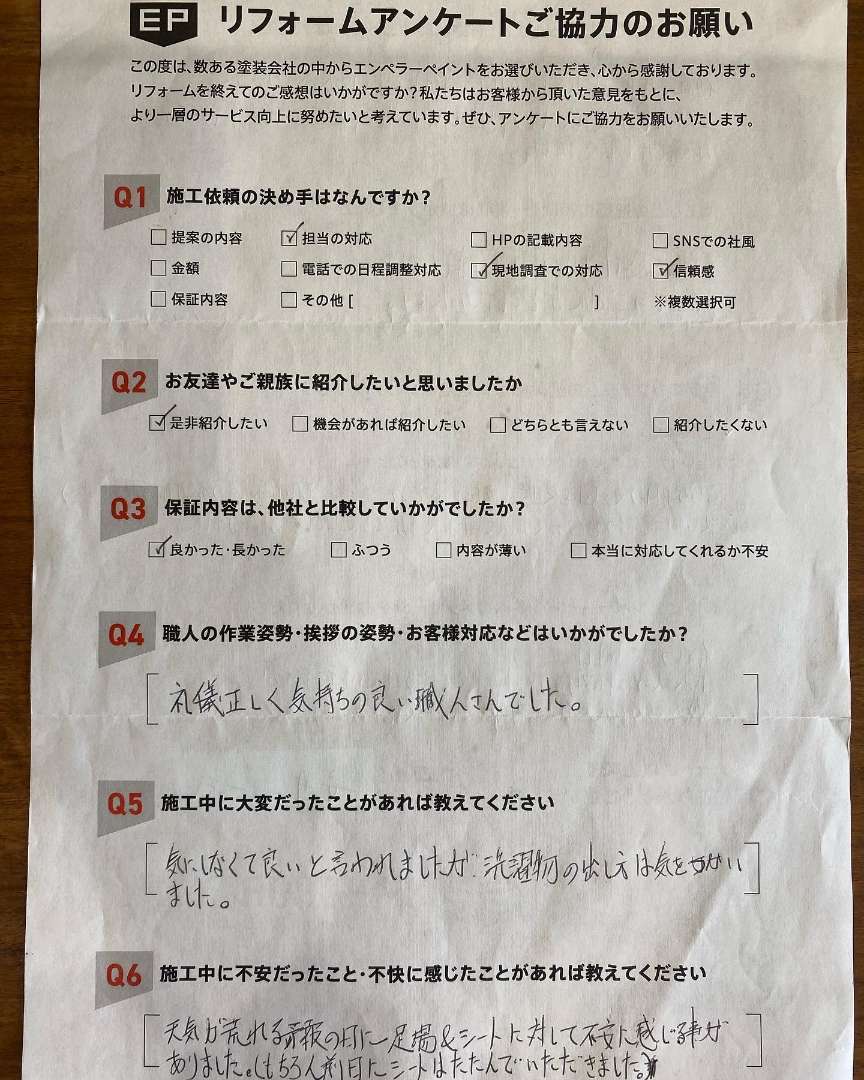 EP リフォームアンケートご協力のお願い
この度は、数ある塗装会社の中からエンペラーペイントをお選びいただき、心から感謝しております。
リフォームを終えてのご感想はいかがですか?私たちはお客様から頂いた意見をもとに、
より一層のサービス向上に努めたいと考えています。ぜひ、アンケートにご協力をお願いいたします。
Q1 施工依頼の決め手はなんですか?
□提案の内容 ☑担当の対応 □HPの記載内容 □SNSでの社風
□金額 □電話での日程調整対応 ☑現地調査での対応 ☑信頼感
□保証内容 □その他 [ ] ※複数選択可
Q2 お友達やご親族に紹介したいと思いましたか
☑是非紹介したい □機会があれば紹介したい □どちらとも言えない □紹介したくない
Q3 保証内容は、他社と比較していかがでしたか?
☑良かった・長かった □ふつう □内容が薄い □本当に対応してくれるか不安
Q4 職人の作業姿勢・挨拶の姿勢・お客様対応などはいかがでしたか?
礼儀正しく気持ちの良い職人さんでした。
Q5 施工中に大変だったことがあれば教えてください
気にしなくて良いと言われましたが、洗濯物の出し方は気をつかい
ました。
Q6 施工中に不安だったこと・不快に感じたことがあれば教えてください
天気が荒れる予報の日に足場&シートに対して不安に感じる事が
ありました。(もちろん前日にシートはたたんでいただきました。)